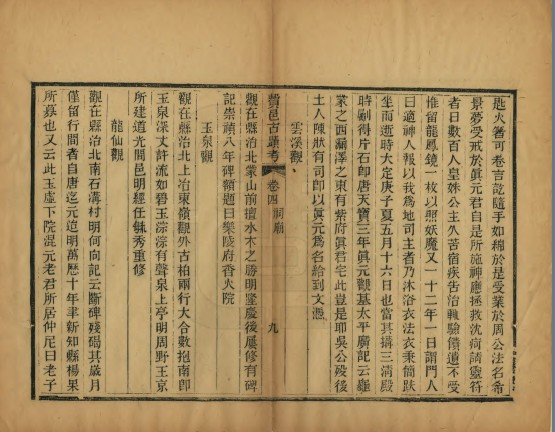 匙火箸可卷言訖隨手如綿於是受業於周公法名希
景夢受戒於眞元君自是所施神應拯救沈痾請靈符
者日數百人皇姝公主久苦宿疾呂治輒驗饋遺不受
惟留龍鳳鏡一枚以照妖魔又一十二年一日謂門人
曰適神人報以我爲地司主者乃沐浴衣法衣秉簡趺
坐而逝時大定庚子夏五月十六日也當其搆三清殿
時劚得片石卽唐天寶三年眞元觀基太平廣記云羅
蒙之西灞澤之東有紫府眞君宅此豈是耶吳公殁後
土人陳狀有司卽以眞元爲名給到文憑
雲溪觀
費邑古蹟考 卷四 祠廟 九
觀在縣治北蒙山前擅水木之勝明隆慶後屢修有碑
記崇禎八年碑額題曰樂陵府香火院
玉泉觀
觀在縣治北上冶東嶺觀外古柏兩行大合數抱南卽
玉泉深丈許流如碧玉淙淙有聲泉上亭明周野王京
所建道光間邑明經任毓秀重修
龍仙觀
觀在縣治北南石溝村明何向記云斷碑殘碣其歲月
僅留行間者自唐迄元迨明萬歷十年聿新知縣楊果
所募也又云此玉虛下院混元老君所居仲尼曰老子